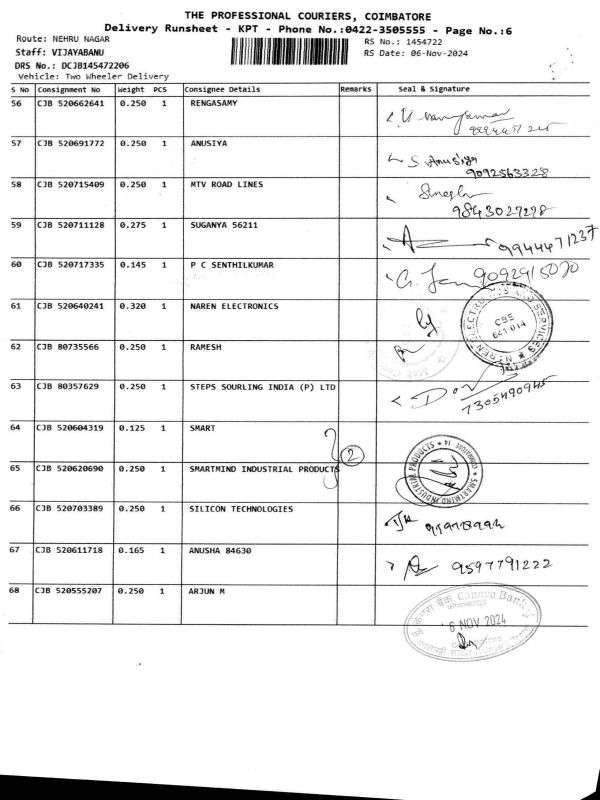 THE PROFESSIONAL COURIERS, COIMBATORE
Delivery Runsheet - KPT - Phone No.:0422-3505555 - Page No.:6
Route: NEHRU NAGAR
RS No.: 1454722
Staff: VIJAYABANU
RS Date: 06-Nov-2024
DRS No.: DCJB145472206
Vehicle: Two Wheeler Delivery
S No Consignment No Weight PCS Consignee Details Remarks Seal & Signature
56 CJB 520662641 0.250 1 RENGASAMY
57 CJB 520691772 0.250 1 ANUSIYA S Anusiya
9092563328
58 CJB 520715409 0.250 1 MTV ROAD LINES
9843029298
59 CJB 520711128 0.275 1 SUGANYA 56211 9944471237
60 CJB 520717335 0.145 1 P C SENTHILKUMAR
61 CJB 520640241 0.320 1 NAREN ELECTRONICS
CBE
641 014
62 CJB 80735566 0.250 1 RAMESH
63 CJB 80357629 0.250 1 STEPS SOURLING INDIA (P) LTD
7305490945
64 CJB 520604319 0.125 1 SMART
2
65 CJB 520620690 0.250 1 SMARTMIND INDUSTRIAL PRODUCTS SMARTMIND INDUSTRIAL PRODUCTS
66 CJB 520703389 0.250 1 SILICON TECHNOLOGIES
67 CJB 520611718 0.165 1 ANUSHA 84630 9597791222
68 CJB 520555207 0.250 1 ARJUN M
Canara Bank
6 NOV 2024